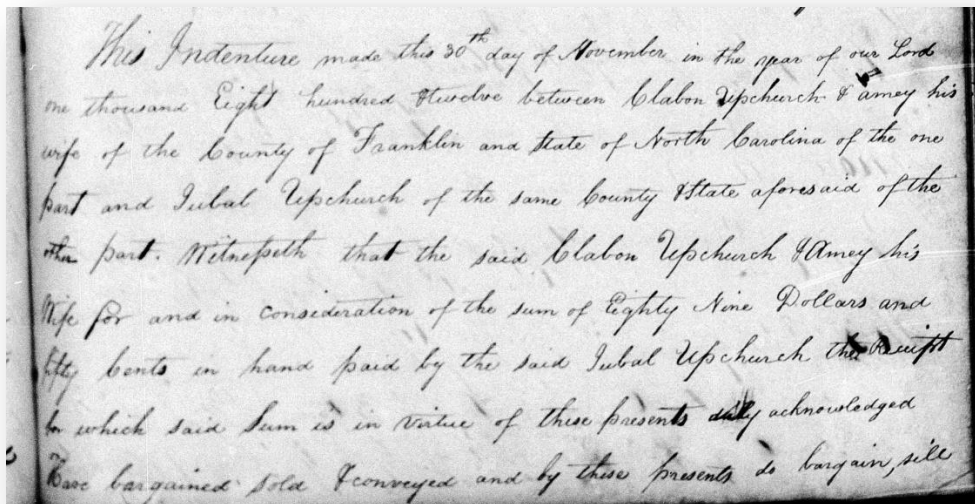 This Indenture made this 30th day of November in the year of our Lord
one thousand Eight hundred & twelve between Clabon Upchurch & amey his
wife of the County of Franklin and State of North Carolina of the one
part and Jubal Upchurch of the same County & State aforesaid of the
other part. Witnesseth that the said Clabon Upchurch & Amey his
Wife for and in consideration of the sum of Eighty Nine Dollars and
fifty Cents in hand paid by the said Jubal Upchurch the Receipt
for which said Sum is in virtue of these presents duly acknowledged
Have bargained sold & conveyed and by these presents do bargain, sell